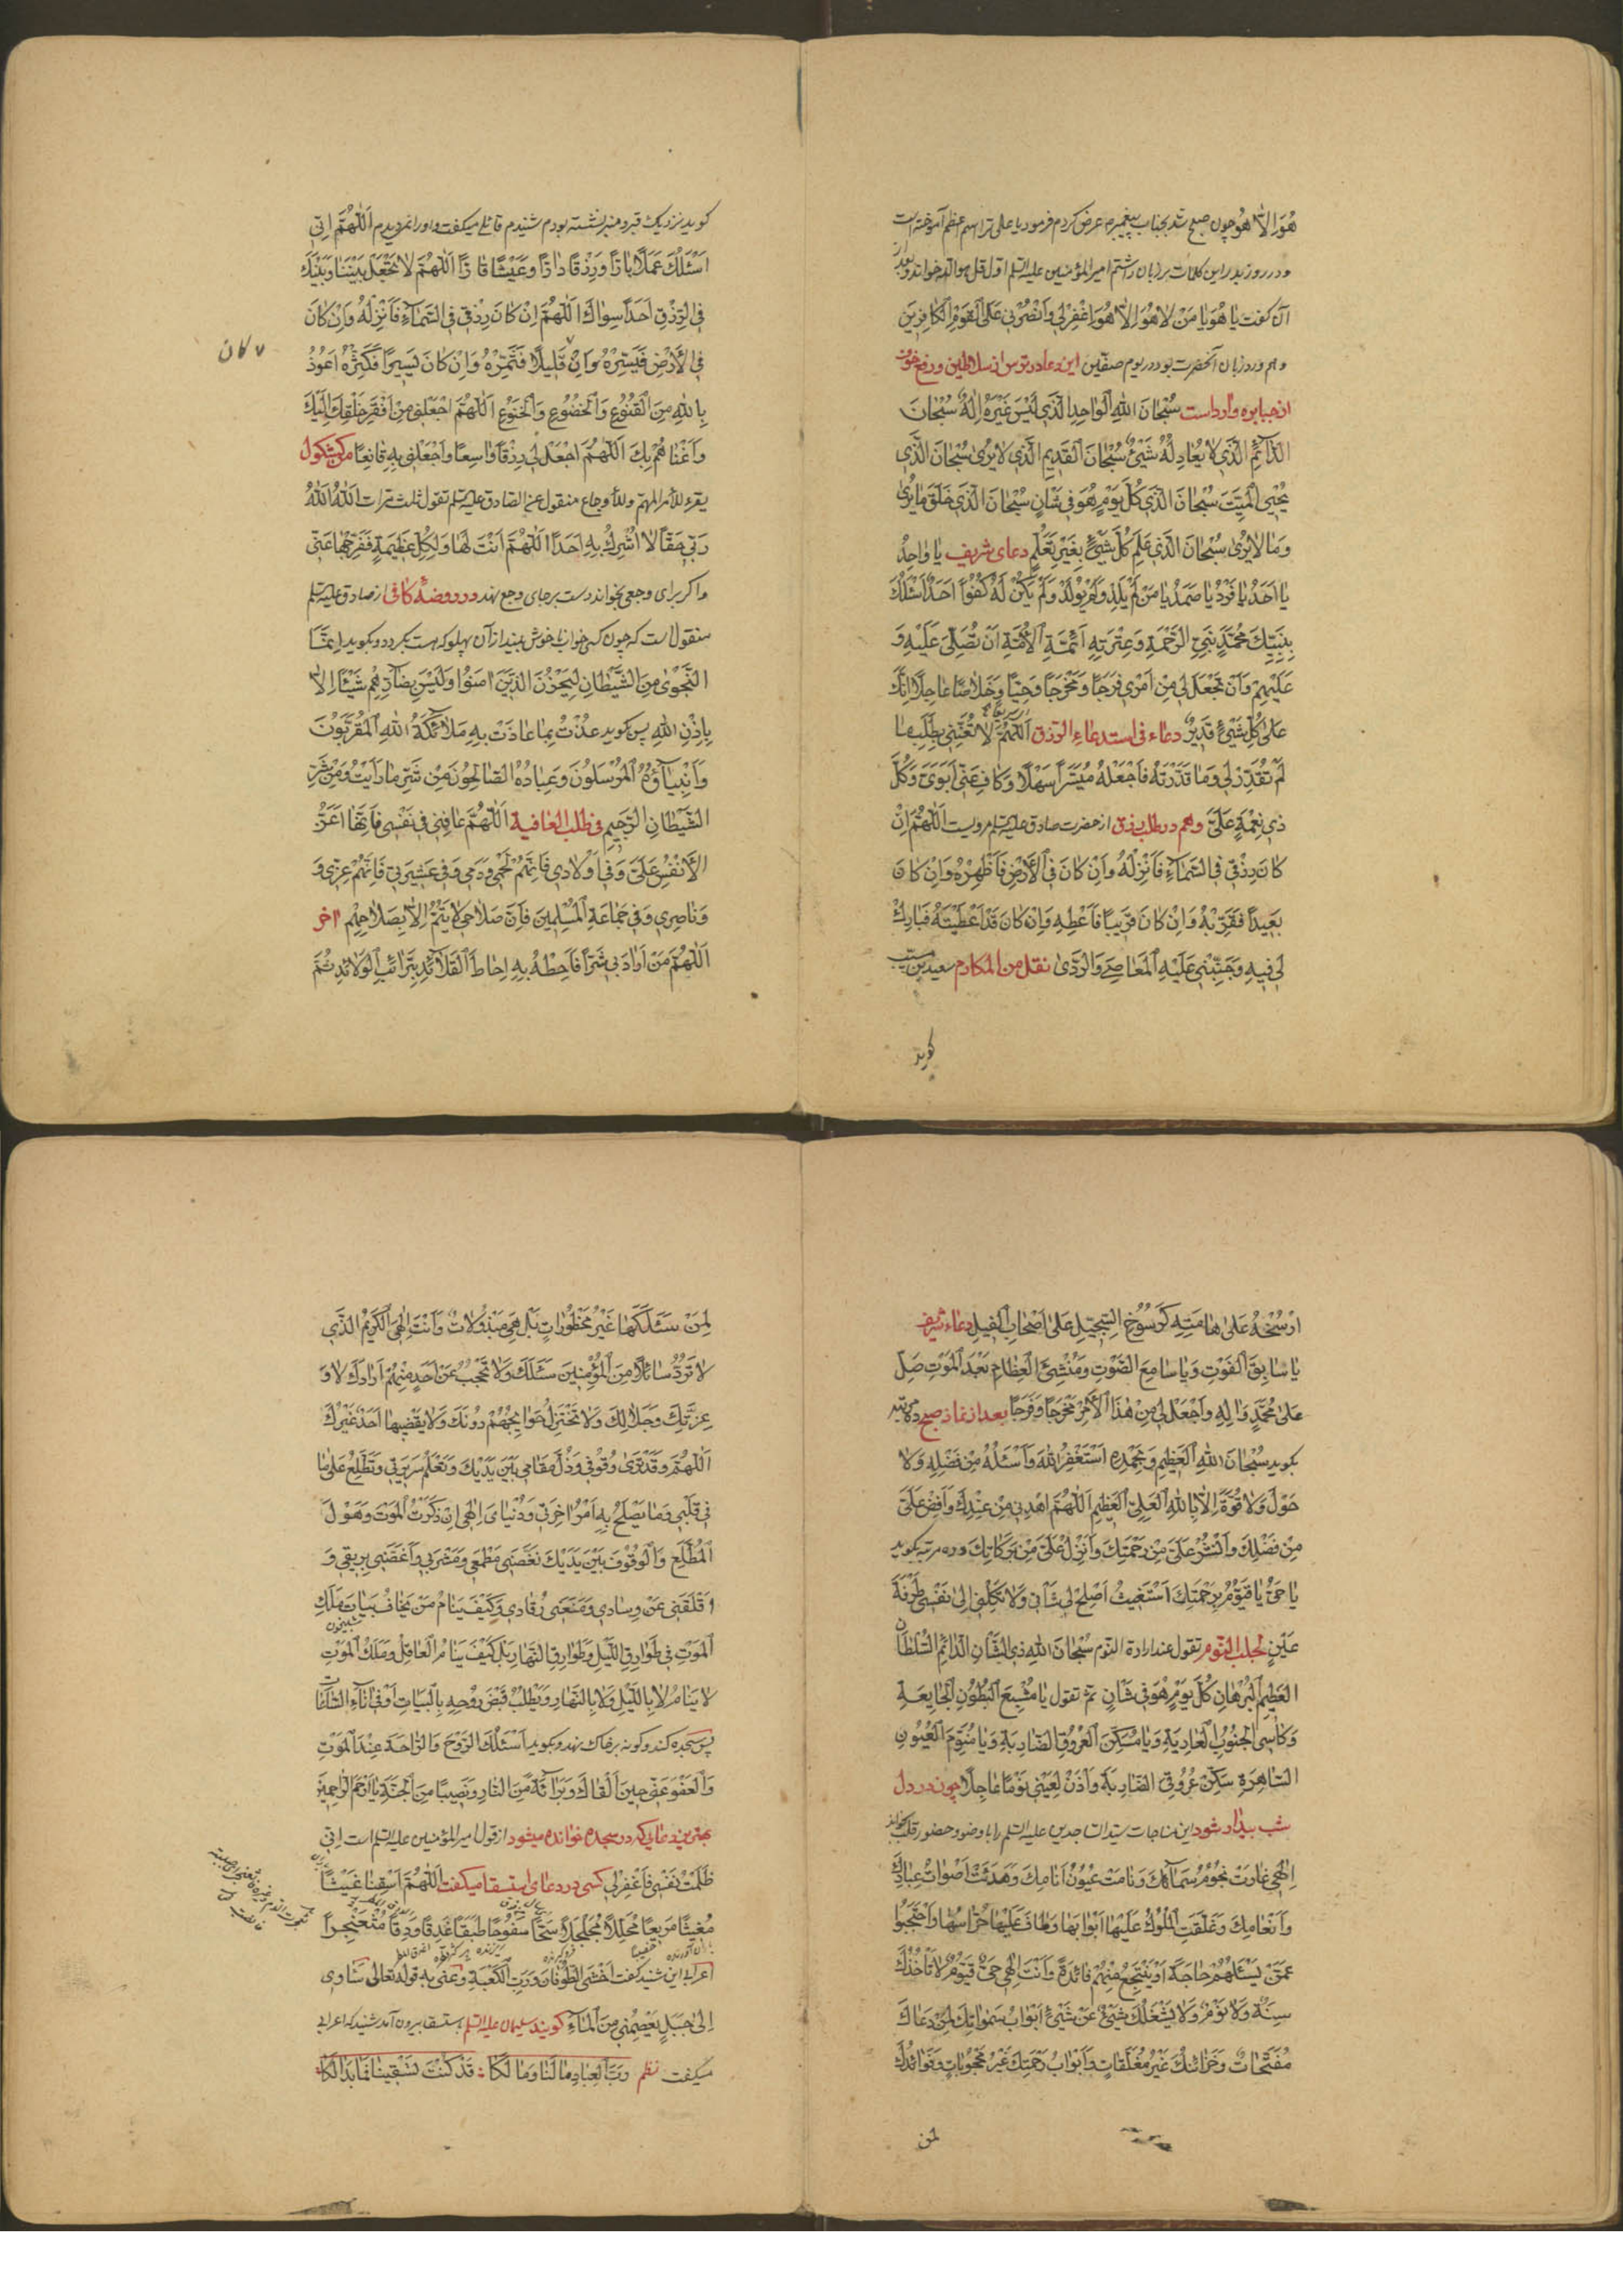 هُوَ اِلّا هُو چون صبح شد بجناب پیغمبر ص عرض کردم فرمود یا علی ترا اسم اعظم آموخته است
و در روز بدر این کلمات بر زبان داشتم امیر المؤمنین علیه السلم اول قل هو الله خواند و بعد از
آن گفت یا هُوَ یا مَنْ لا هُوَ اِلّا هُوَ اِغْفِرْلی وَانْصُرْنی عَلَی الْقَوْمِ الْکافِرینَ
و هم ورد زبان آنحضرت بود در یوم صفّین این دعا در ترس از سلاطین و رفع خوف
از جبابره وارداست سُبْحانَ اللّٰهِ الْواحِدِ الَّذی لَیْسَ غَیْرَهُ اِلٰهٌ سُبْحانَ
الدّائِمِ الَّذی لا یُعادِلُهُ شَیْئٌ سُبْحانَ الْقَدیمِ الَّذی لا یُریٰ سُبْحانَ الَّذی
یُحْیِی الْمَیِّتَ سُبْحانَ الَّذی کُلَّ یَوْمٍ هُوَ فی شَانٍ سُبْحانَ الَّذی خَلَقَ ما یُریٰ
وَما لا یُریٰ سُبْحانَ الَّذی عَلِمَ کُلَّ شَیْئٍ بِغَیْرِ تَعَلُّمٍ دعای شریف یا واحِدُ
یا اَحَدُ یا فَرْدُ یا صَمَدُ یا مَنْ لَمْ یَلِدْ وَلَمْ یُولَدْ وَلَمْ یَکُنْ لَهُ کُفُواً اَحَدٌ اَسْئَلُکَ
بِنَبِیِّکَ مُحَمَّدٍ نَبِیِّ الرَّحْمَةِ وَعِتْرَتِهِ اَئِمَّةِ الْاُمَّةِ اَنْ تُصَلِّیَ عَلَیْهِ وَ
عَلَیْهِمْ وَاَنْ تَجْعَلَ لی مِنْ اَمْری فَرَجاً وَمَخْرَجاً وَحِیّاً وَخَلاصاً عاجِلاً اِنَّکَ
عَلیٰ کُلِّ شَیْئٍ قَدیرٌ دعاء فی استدعاء الرّزق اَللّٰهُمَّ لا تُعَنِّنی بِطَلَبِ ما
لَمْ تُقَدِّرْ لی وَما قَدَّرْتَهُ فَاجْعَلْهُ مُیَسَّراً سَهْلاً وَکافِ عَنّی اَبَوَیَّ وَکُلَّ
ذی نِعْمَةٍ عَلَیَّ و هم در طلب رزق از حضرت صادق علیه السلم مرویست اَللّٰهُمَّ اِنْ
کانَ رِزْقی فِی السَّمآءِ فَاَنْزِلْهُ وَاِنْ کانَ فِی الْاَرْضِ فَاَظْهِرْهُ وَاِنْ کانَ
بَعیداً فَقَرِّبْهُ وَاِنْ کانَ قَریباً فَاَعْطِهِ وَاِنْ کانَ قَدْ اَعْطَیْتَهُ فَبارِکْ
لی فیهِ وَجَنِّبْنی عَلَیْهِ الْمَعاصِیَ وَالرَّدیٰ نقل من المکارم سعید بن مسیّب
کوید
کوید نزدیک قبر و منبر نشسته بودم شنیدم قائلی میگفت و او را نمیدیدم اَللّٰهُمَّ اِنّی
اَسْئَلُکَ عَمَلاً بارّاً وَرِزْقاً دارّاً وَعَیْشاً قارّاً اَللّٰهُمَّ لا تَجْعَلْ بَیْنَنا وَبَیْنَکَ
فِی الرِّزْقِ اَحَداً سِواکَ اَللّٰهُمَّ اِنْ کانَ رِزْقی فِی السَّمآءِ فَاَنْزِلْهُ وَاِنْ کانَ
فِی الْاَرْضِ فَیَسِّرْهُ وَاِنْ قَلیلاً فَثَمِّرْهُ وَاِنْ کانَ یَسیراً فَکَثِّرْهُ اَعُوذُ
کان
بِاللّٰهِ مِنَ الْقُنُوعِ وَالْخُضُوعِ وَالْخُنُوعِ اَللّٰهُمَّ اجْعَلْنی مِنْ اَفْقَرِ خَلْقِکَ اِلَیْکَ
وَاَغْناهُمْ بِکَ اَللّٰهُمَّ اجْعَلْ لی رِزْقاً واسِعاً وَاجْعَلْنی بِهِ قانِعاً من کشکول
یقرء للامر المهم وللاوجاع منقول عن الصادق علیه السلم تقول ثلث مرات اَللّٰهُ اَللّٰهُ
رَبّی حَقّاً لا اُشْرِکُ بِهِ اَحَداً اَللّٰهُمَّ اَنْتَ لَها وَلِکُلِّ عَظیمَةٍ فَفَرِّجْها عَنّی
و اگر برای وجعی بخواند دست بر جای وجع نهد در روضهٔ کافی از صادق علیه السلم
منقول است که چون کسی خواب ناخوش بیند از آن پهلو که هست بگردد و بگوید اِنَّمَا
النَّجْویٰ مِنَ الشَّیْطانِ لِیَحْزُنَ الَّذینَ امَنُوا وَلَیْسَ بِضآرِّهِمْ شَیْئاً اِلّا
بِاِذْنِ اللّٰهِ پس گوید عُذْتُ بِما عاذَتْ بِهِ مَلآئِکَةُ اللّٰهِ الْمُقَرَّبُونَ
وَاَنْبِیآؤُهُ الْمُرْسَلُونَ وَعِبادُهُ الصّالِحُونَ مِنْ شَرِّ ما رَاَیْتُ وَمِنْ شَرِّ
الشَّیْطانِ الرَّجیمِ فی طلب العافیة اَللّٰهُمَّ عافِنی فی نَفْسی فَاِنَّها اَعَزُّ
الْاَنْفُسِ عَلَیَّ وَفی اَوْلادی فَاِنَّهُمْ لَحْمی وَدَمی وَفی عَشیرَتی فَاِنَّهُمْ عِزّی وَ
وَناصِری وَفی جَماعَةِ الْمُسْلِمینَ فَاِنَّ صَلاحی لا یَتِمُّ اِلّا بِصَلاحِهِمْ اخر
اَللّٰهُمَّ مَنْ اَرادَ بی شَرّاً فَاَحِطْهُ بِهِ اِحاطَةَ الْقَلآئِدِ بِتَرآئِبِ الْوَلآئِدِ ثُمَّ
اَرْسِخْهُ عَلیٰ هامَتِهِ کَرُسُوخِ السِّجّیلِ عَلیٰ اَصْحابِ الْفیلِ دعاء شریف
یا سابِقَ الْفَوْتِ وَیا سامِعَ الصَّوْتِ وَمُنْشِئَ الْعِظامِ بَعْدَ الْمَوْتِ صَلِّ
عَلیٰ مُحَمَّدٍ وَالِهِ وَاجْعَلْ لی مِنْ هٰذَا الْاَمْرِ مَخْرَجاً وَفَرَجاً بعد از نماز صبح ده مرتبه
بگوید سُبْحانَ اللّٰهِ الْعَظیمِ وَبِحَمْدِهِ اَسْتَغْفِرُ اللّٰهَ وَاَسْئَلُهُ مِنْ فَضْلِهِ وَلا
حَوْلَ وَلا قُوَّةَ اِلّا بِاللّٰهِ الْعَلِیِّ الْعَظیمِ اَللّٰهُمَّ اهْدِنی مِنْ عِنْدِکَ وَاَفِضْ عَلَیَّ
مِنْ فَضْلِکَ وَانْشُرْ عَلَیَّ مِنْ رَحْمَتِکَ وَاَنْزِلْ عَلَیَّ مِنْ بَرَکاتِکَ و ده مرتبه بگوید
یا حَیُّ یا قَیُّومُ بِرَحْمَتِکَ اَسْتَغیثُ اَصْلِحْ لی شَاْنی وَلا تَکِلْنی اِلیٰ نَفْسی طَرْفَةَ
عَیْنٍ لجلب النّوم تقول عند ارادة النوم سُبْحانَ اللّٰهِ ذِی الشَّاْنِ الدّائِمِ السُّلْطانِ
الْعَظیمِ الْبُرْهانِ کُلَّ یَوْمٍ هُوَ فی شَانٍ ثم تقول یا مُشْبِعَ الْبُطُونِ الْجایِعَةِ
وَکاسِیَ الْجُنُوبِ الْعارِیَةِ وَیا مُسَکِّنَ الْعُرُوقِ الضّارِبَةِ وَیا مُنَوِّمَ الْعُیُونِ
السّاهِرَةِ سَکِّنْ عُرُوقِیَ الضّارِبَةَ وَاْذَنْ لِعَیْنی نَوْماً عاجِلاً چون در دل
شب بیدار شود این مناجات سید الساجدین علیه السلم را با وضو و حضور قلب بخواند
اِلٰهی غارَتْ نُجُومُ سَمآئِکَ وَنامَتْ عُیُونُ اَنامِکَ وَهَدَئَتْ اَصْواتُ عِبادِکَ
وَاَنْعامِکَ وَغَلَّقَتِ الْمُلُوکُ عَلَیْها اَبْوابَها وَطافَ عَلَیْها حُرّاسُها وَاحْتَجَبُوا
عَمَّنْ یَسْئَلُهُمْ حاجَةً اَوْ یَنْتَجِعُ مِنْهُمْ فائِدَةً وَاَنْتَ اِلٰهی حَیٌّ قَیُّومٌ لا تَاْخُذُکَ
سِنَةٌ وَلا نَوْمٌ وَلا یَشْغَلُکَ شَیْئٌ عَنْ شَیْئٍ اَبْوابُ سَمٰواتِکَ لِمَنْ دَعاکَ
مُفَتَّحاتٌ وَخَزائِنُکَ غَیْرُ مُغَلَّقاتٍ وَاَبْوابُ رَحْمَتِکَ غَیْرُ مَحْجُوباتٍ وَفَوائِدُکَ
لمن
لِمَنْ سَئَلَکَها غَیْرُ مَحْظُوراتٍ بَلْ هِیَ مَبْذُولاتٌ وَاَنْتَ اِلٰهِیَ الْکَریمُ الَّذی
لا تَرُدُّ سائِلاً مِنَ الْمُؤْمِنینَ سَئَلَکَ وَلا تَحْجُبُ عَنْ اَحَدٍ مِنْهُمْ اَرادَکَ لا وَ
عِزَّتِکَ وَجَلالِکَ وَلا تَخْتَزِلُ حَوائِجُهُمْ دُونَکَ وَلا یَقْضیها اَحَدٌ غَیْرُکَ
اَللّٰهُمَّ وَقَدْ تَریٰ وُقُوفی وَذُلَّ مَقامی بَیْنَ یَدَیْکَ وَتَعْلَمُ سَریرَتی وَتَطَّلِعُ عَلیٰ ما
فی قَلْبی وَما یَصْلَحُ بِهِ اَمْرُ اخِرَتی وَدُنْیایَ اِلٰهی اِنْ ذَکَرْتُ الْمَوْتَ وَهَوْلَ
الْمُطَّلَعِ وَالْوُقُوفَ بَیْنَ یَدَیْکَ نَغَّصَنی مَطْعَمی وَمَشْرَبی وَاَغَصَّنی بِریقی وَ
اَقْلَقَنی عَنْ وِسادی وَمَنَعَنی رُقادی وَکَیْفَ یَنامُ مَنْ یَخافُ بَیاتَ مَلَکِ
شبیخون
الْمَوْتِ فی طَوارِقِ اللَّیْلِ وَطَوارِقِ النَّهارِ بَلْ کَیْفَ یَنامُ الْعاقِلُ وَمَلَکُ الْمَوْتِ
لا یَنامُ لا بِاللَّیْلِ وَلا بِالنَّهارِ وَیَطْلُبُ قَبْضَ رُوحِهِ بِالْبَیاتِ اَوْ فی اناءِ السّاعاتِ
پس سجده کند و گونه بر خاک نهد و بگوید اَسْئَلُکَ الرَّوْحَ وَالرّاحَةَ عِنْدَ الْمَوْتِ
وَالْعَفْوَ عَنّی حینَ اَلْقاکَ وَبَرآئَةً مِنَ النّارِ وَنَصیباً مِنَ الْجَنَّةِ یا اَرْحَمَ الرّاحِمینَ
بهترین دعائی که در سجده خوانده میشود از قول امیر المؤمنین علیه السلم است اِنّی
ظَلَمْتُ نَفْسی فَاغْفِرْلی کسی در دعای استسقا میگفت اَللّٰهُمَّ اَسْقِنا غَیْثاً
مُغیثاً مَریعاً مُجَلِّلاً مُجَلْجِلاً سَحّاً سَفُوحاً طَبَقاً غَدِقاً وَدِقاً مُثْعَنْجِراً
اعرابی این شنید گفت اَخْشَی الطُّوفانَ وَرَبِّ الْکَعْبَةِ وَعَنیٰ بِهِ قَوْلَهُ تعالی سَآوی
اِلیٰ جَبَلٍ یَعْصِمُنی مِنَ الْمآءِ گویند سلیمان علیه السلم باستسقا بیرون آمد شنید که اعرابی
میگفت نظم رَبَّ الْعِبادِ ما لَنا وَما لَکا قَدْ کُنْتَ تَسْقینا فَما بَدا لَکا